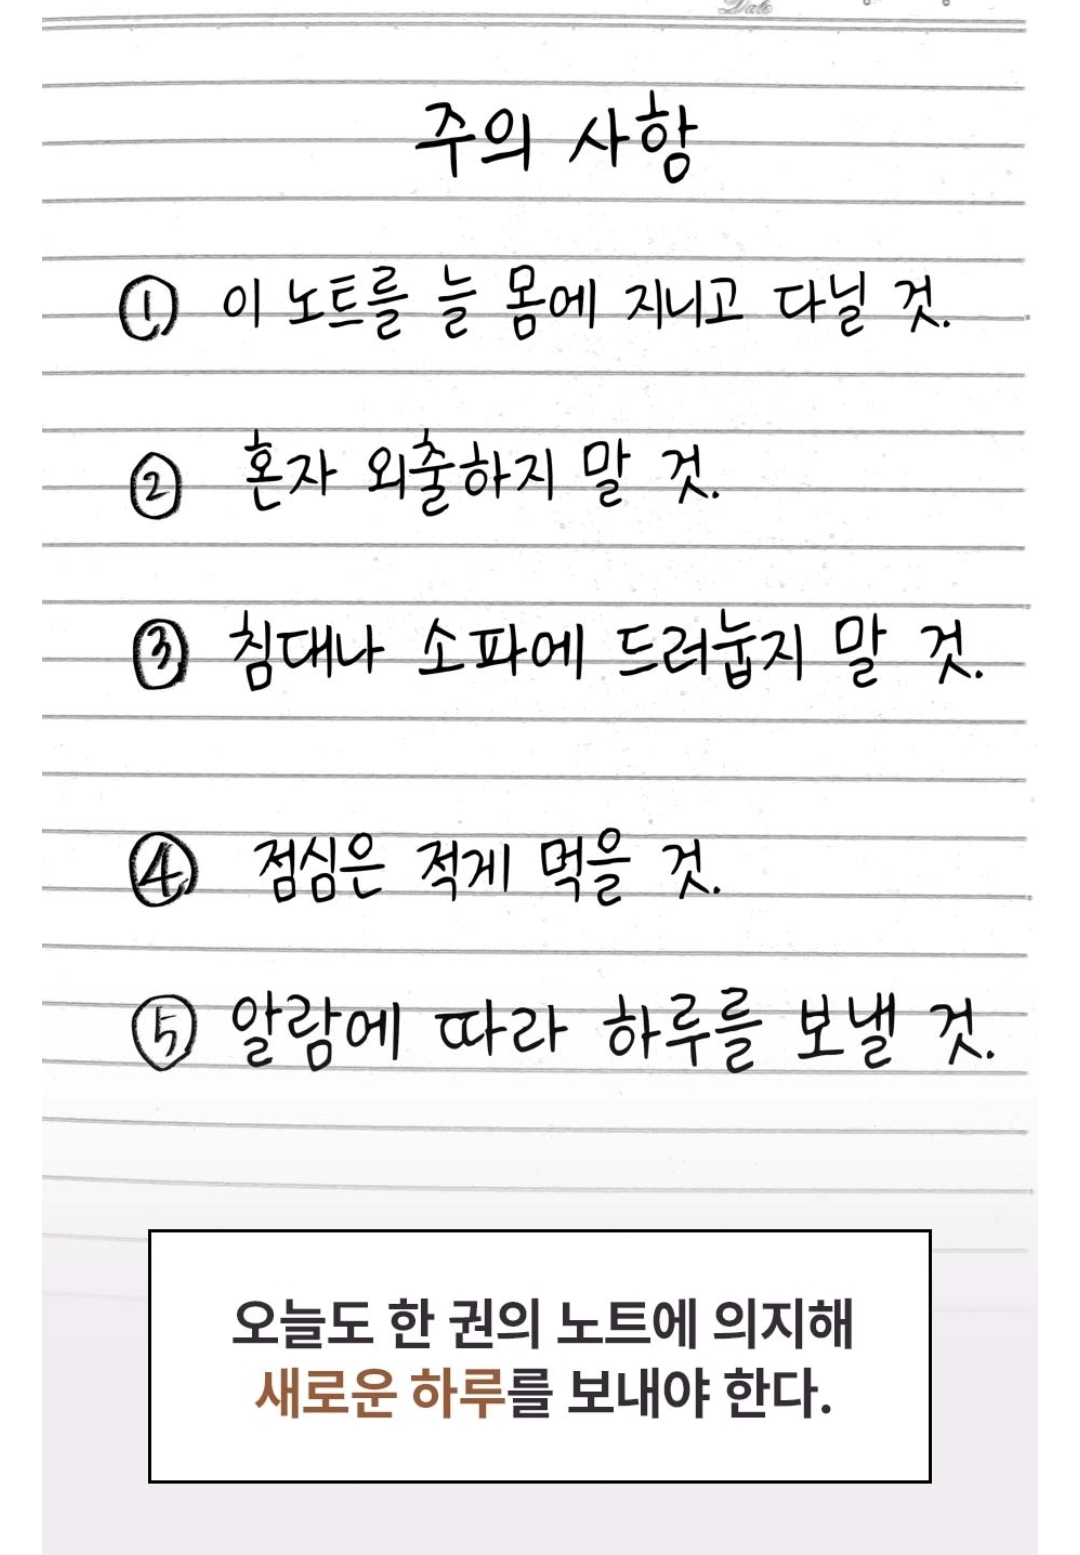 Date
주의 사항
① 이 노트를 늘 몸에 지니고 다닐 것.
② 혼자 외출하지 말 것.
③ 침대나 소파에 드러눕지 말 것.
④ 점심은 적게 먹을 것.
⑤ 알람에 따라 하루를 보낼 것.
오늘도 한 권의 노트에 의지해
새로운 하루를 보내야 한다.